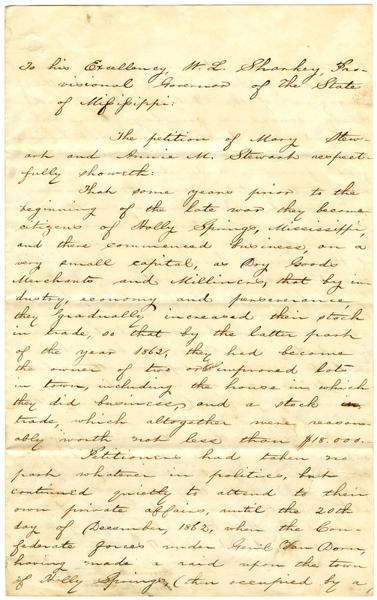 To his Excellency, W. L. Sharkey, Pro-
visional Governor of the State
of Mississippi:
The petition of Mary Stew-
art and Annie M. Stewart respect-
fully showeth:
That some years prior to the
beginning of the late war they became
citizens of Holly Springs, Mississippi,
and there commenced business, on a
very small capital, as Dry Goods
Merchants and Milliners, that by in
dustry, economy and perseverance,
they gradually increased their stock
in trade, so that by the latter part
of the year 1862, they had become
the owner of two improved lots
in town, including the house in which
they did business, and a stock in
trade, which altogether were reason-
ably worth not less than $18.000.
Petitioners had taken no
part whatever in politics, but
continued quietly to attend to their
own private affairs, until the 20th
day of December, 1862, when the Con-
federate forces under Genl Van Dorn,
having made a raid upon the town
of Holly Springs, (then occupied by a